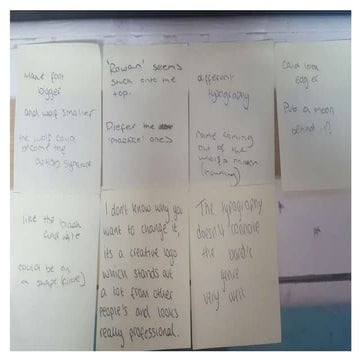 Make font
bigger
and wolf smaller
the wolf could
become the
authors signature
'Rowan' seems
stuck onto the
top.
Prefer the
'practice' ones
different
typography
name coming
out of the
wolf's
(howling)
Could look
edgier
Put a moon
behind it?
like the black
and white
could be on
a shape (circle)
I don't know why you
want to change it,
its a creative logo
which stands out
a lot from other
people's and looks
really professional.
The typography
doesn't connote
the
genre
very well